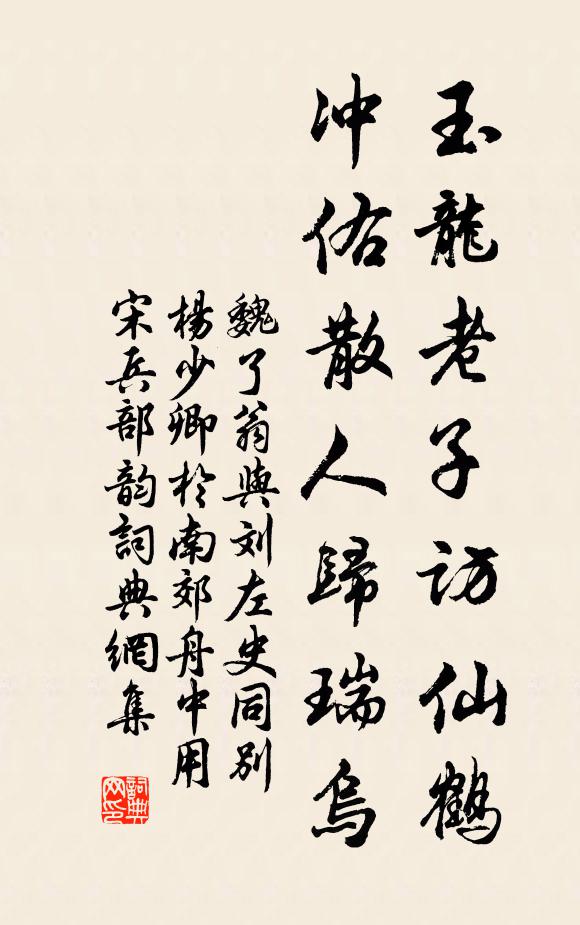 玉龍老子访仙鶴
冲佑散人歸瑞烏
魏了翁與刘左史同别
楊少卿於南郊舟中用
宋兵部韵詞典網集
詞典网印